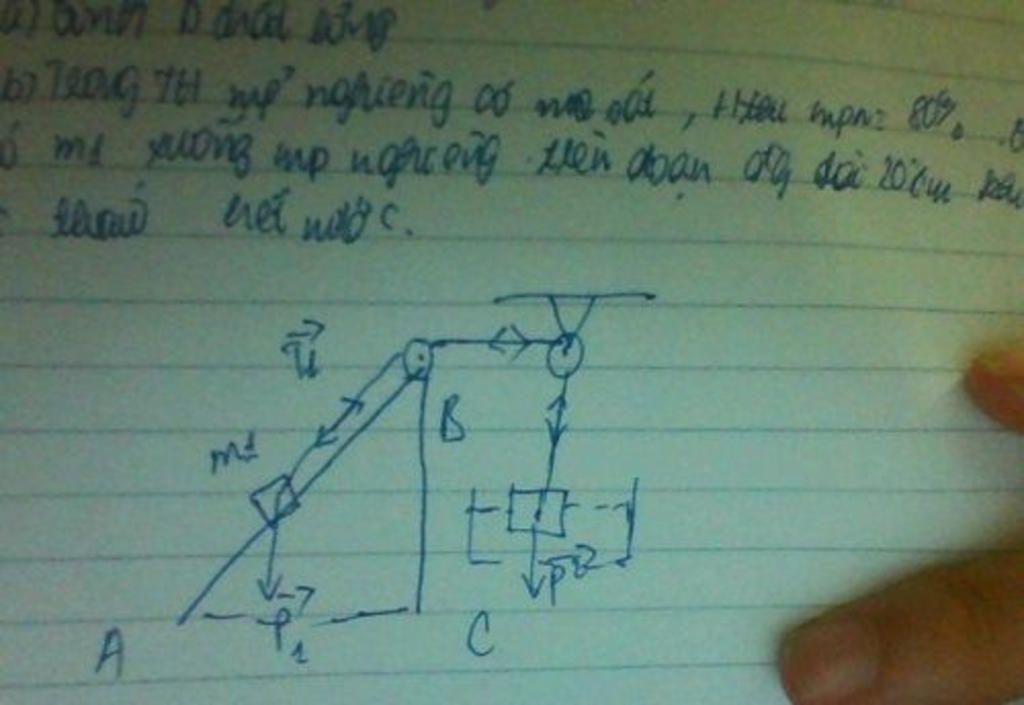 a) Tính D chất lỏng
b) Trong TH mp nghiêng có ma sát, Hiệu mpn = 80%.
m1 xuống mp nghiêng trên đoạn đg dài 20cm
hết nước.
U
m1
B
A
P1
C
P2